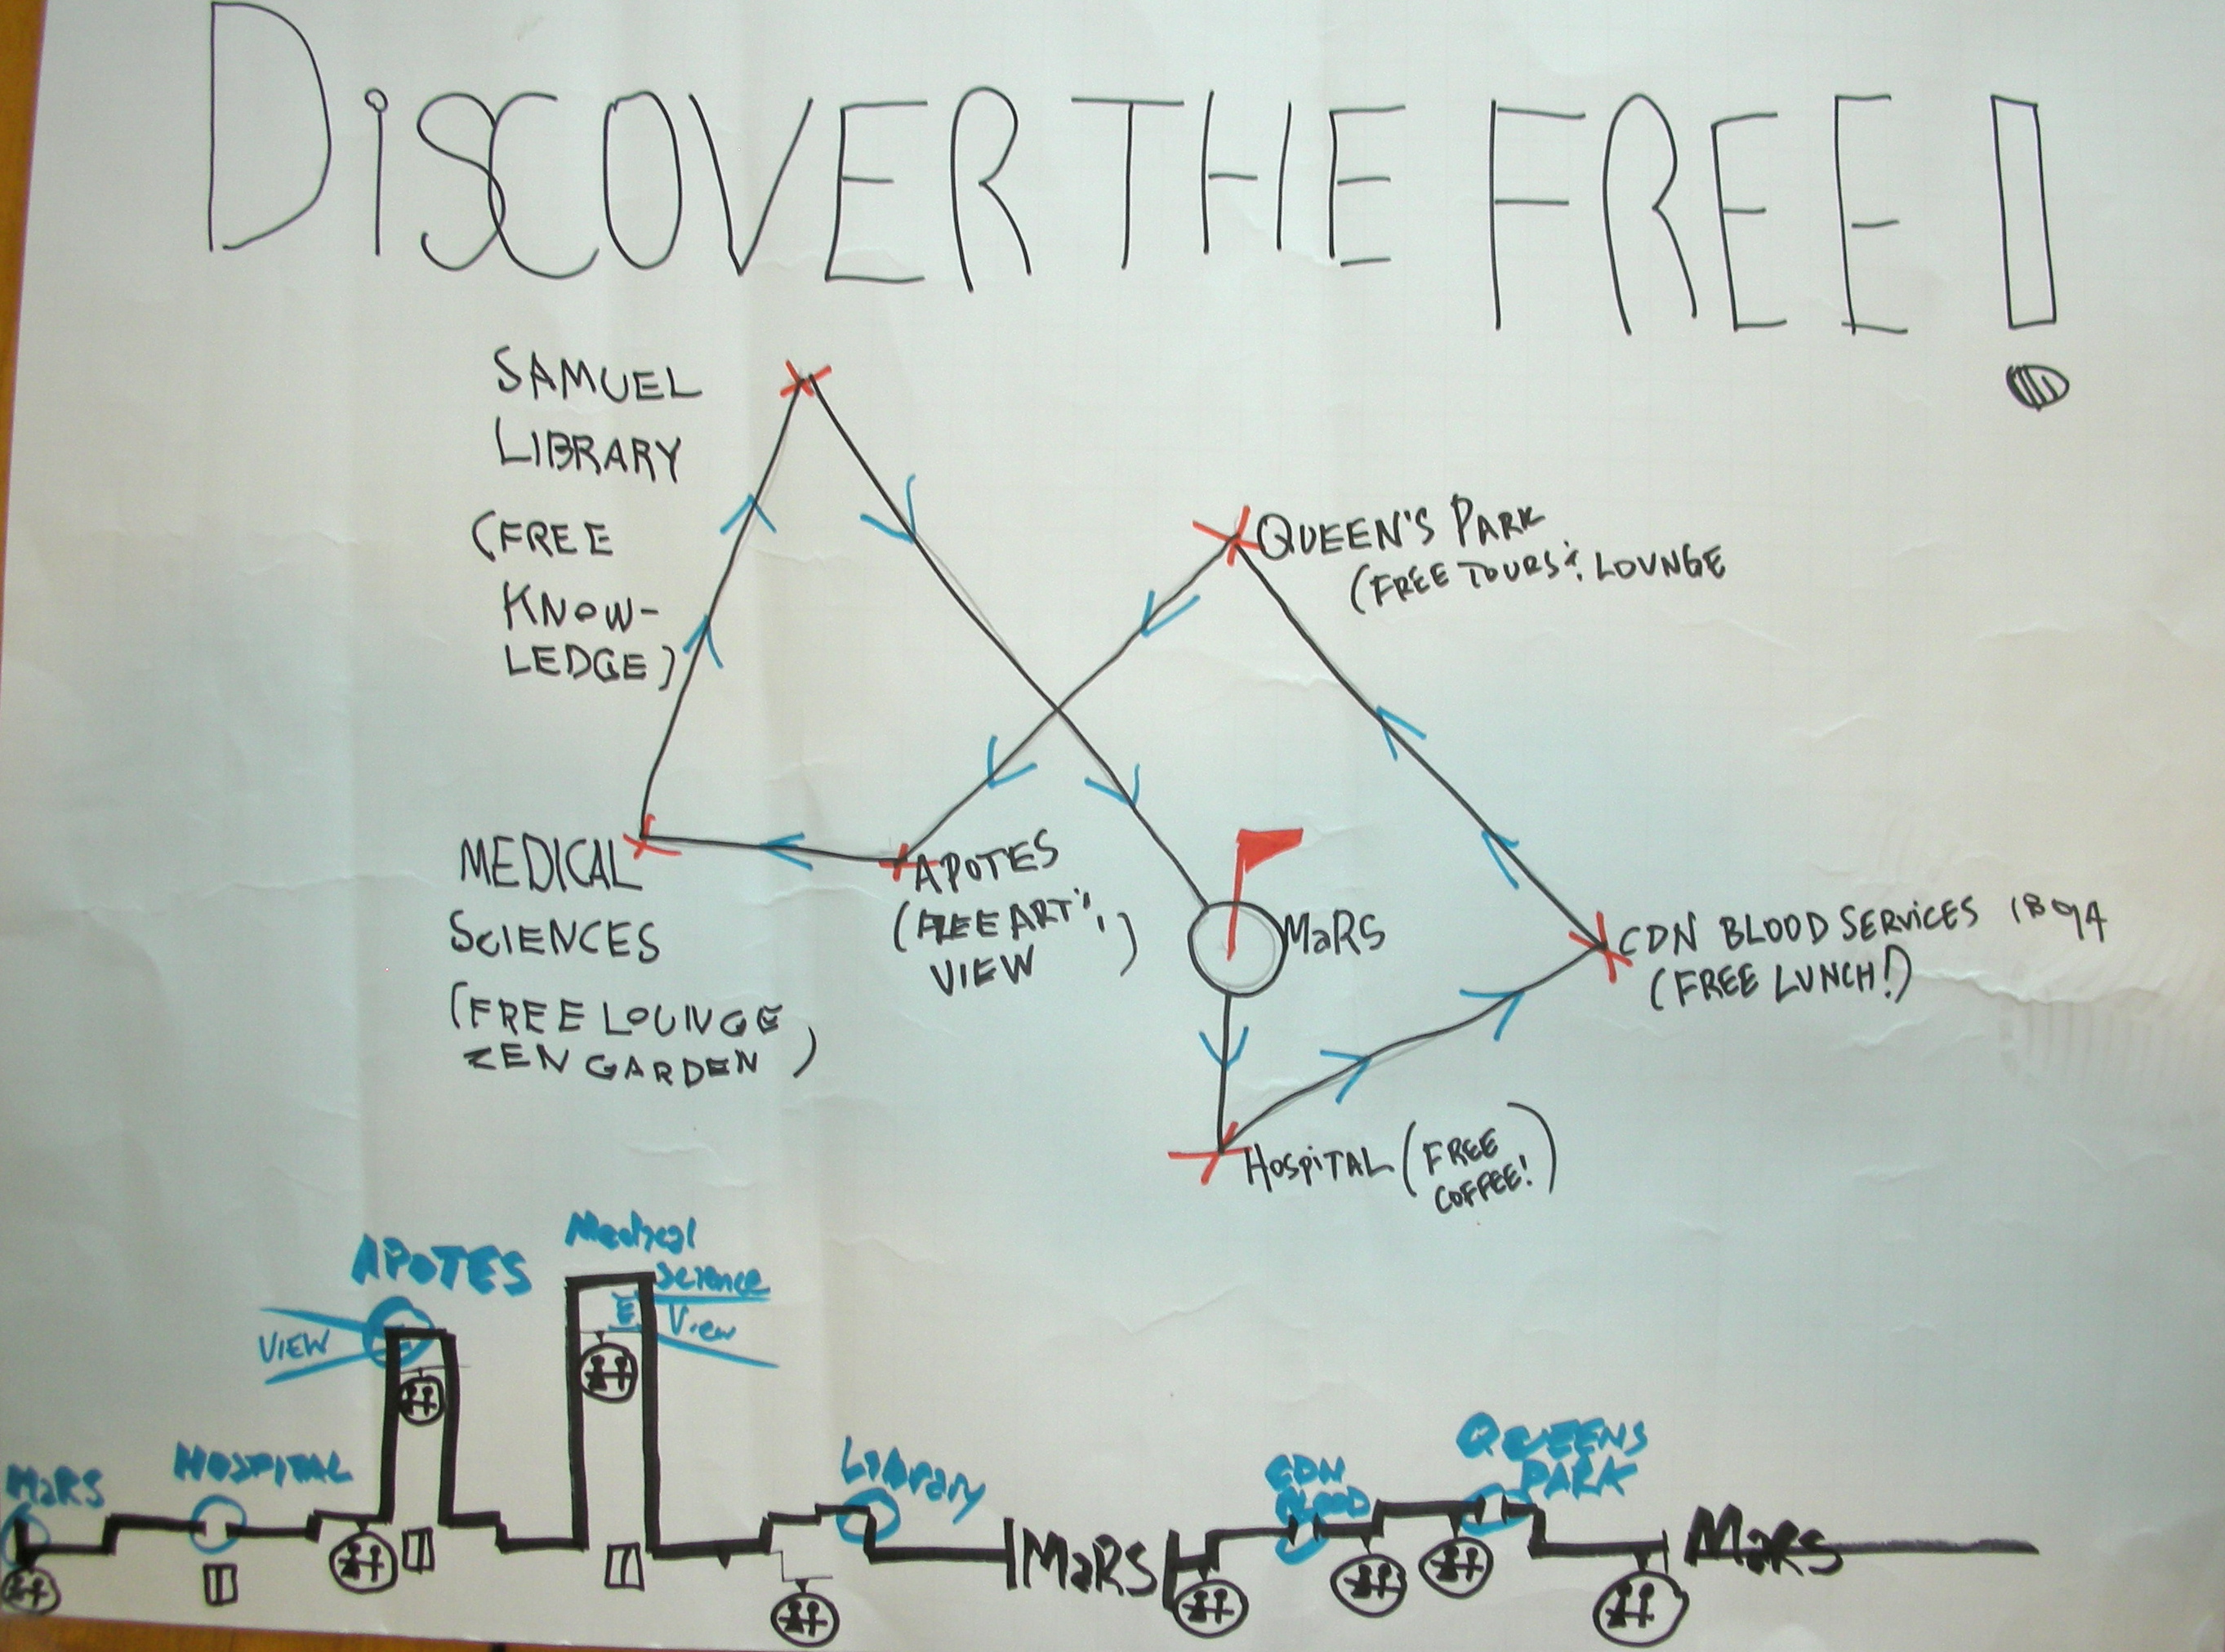 DiSCOVER THE FREE!
SAMUEL
LIBRARY
(FREE
KNOW-
LEDGE)
QUEEN'S PARK
(FREE TOURS & LOUNGE
MEDICAL
SCIENCES
(FREE LOUNGE
ZEN GARDEN)
APOTES
(FREE ART &
VIEW)
MaRS
CDN BLOOD SERViCES
(FREE LUNCH!)
HOSPiTAL (FREE
COFFEE!)
APOTES
VIEW
Medical
Science
View
MaRS
HOSPITAL
Library
MaRS
CDN
BLOOD
QUEENS
PARK
MaRS